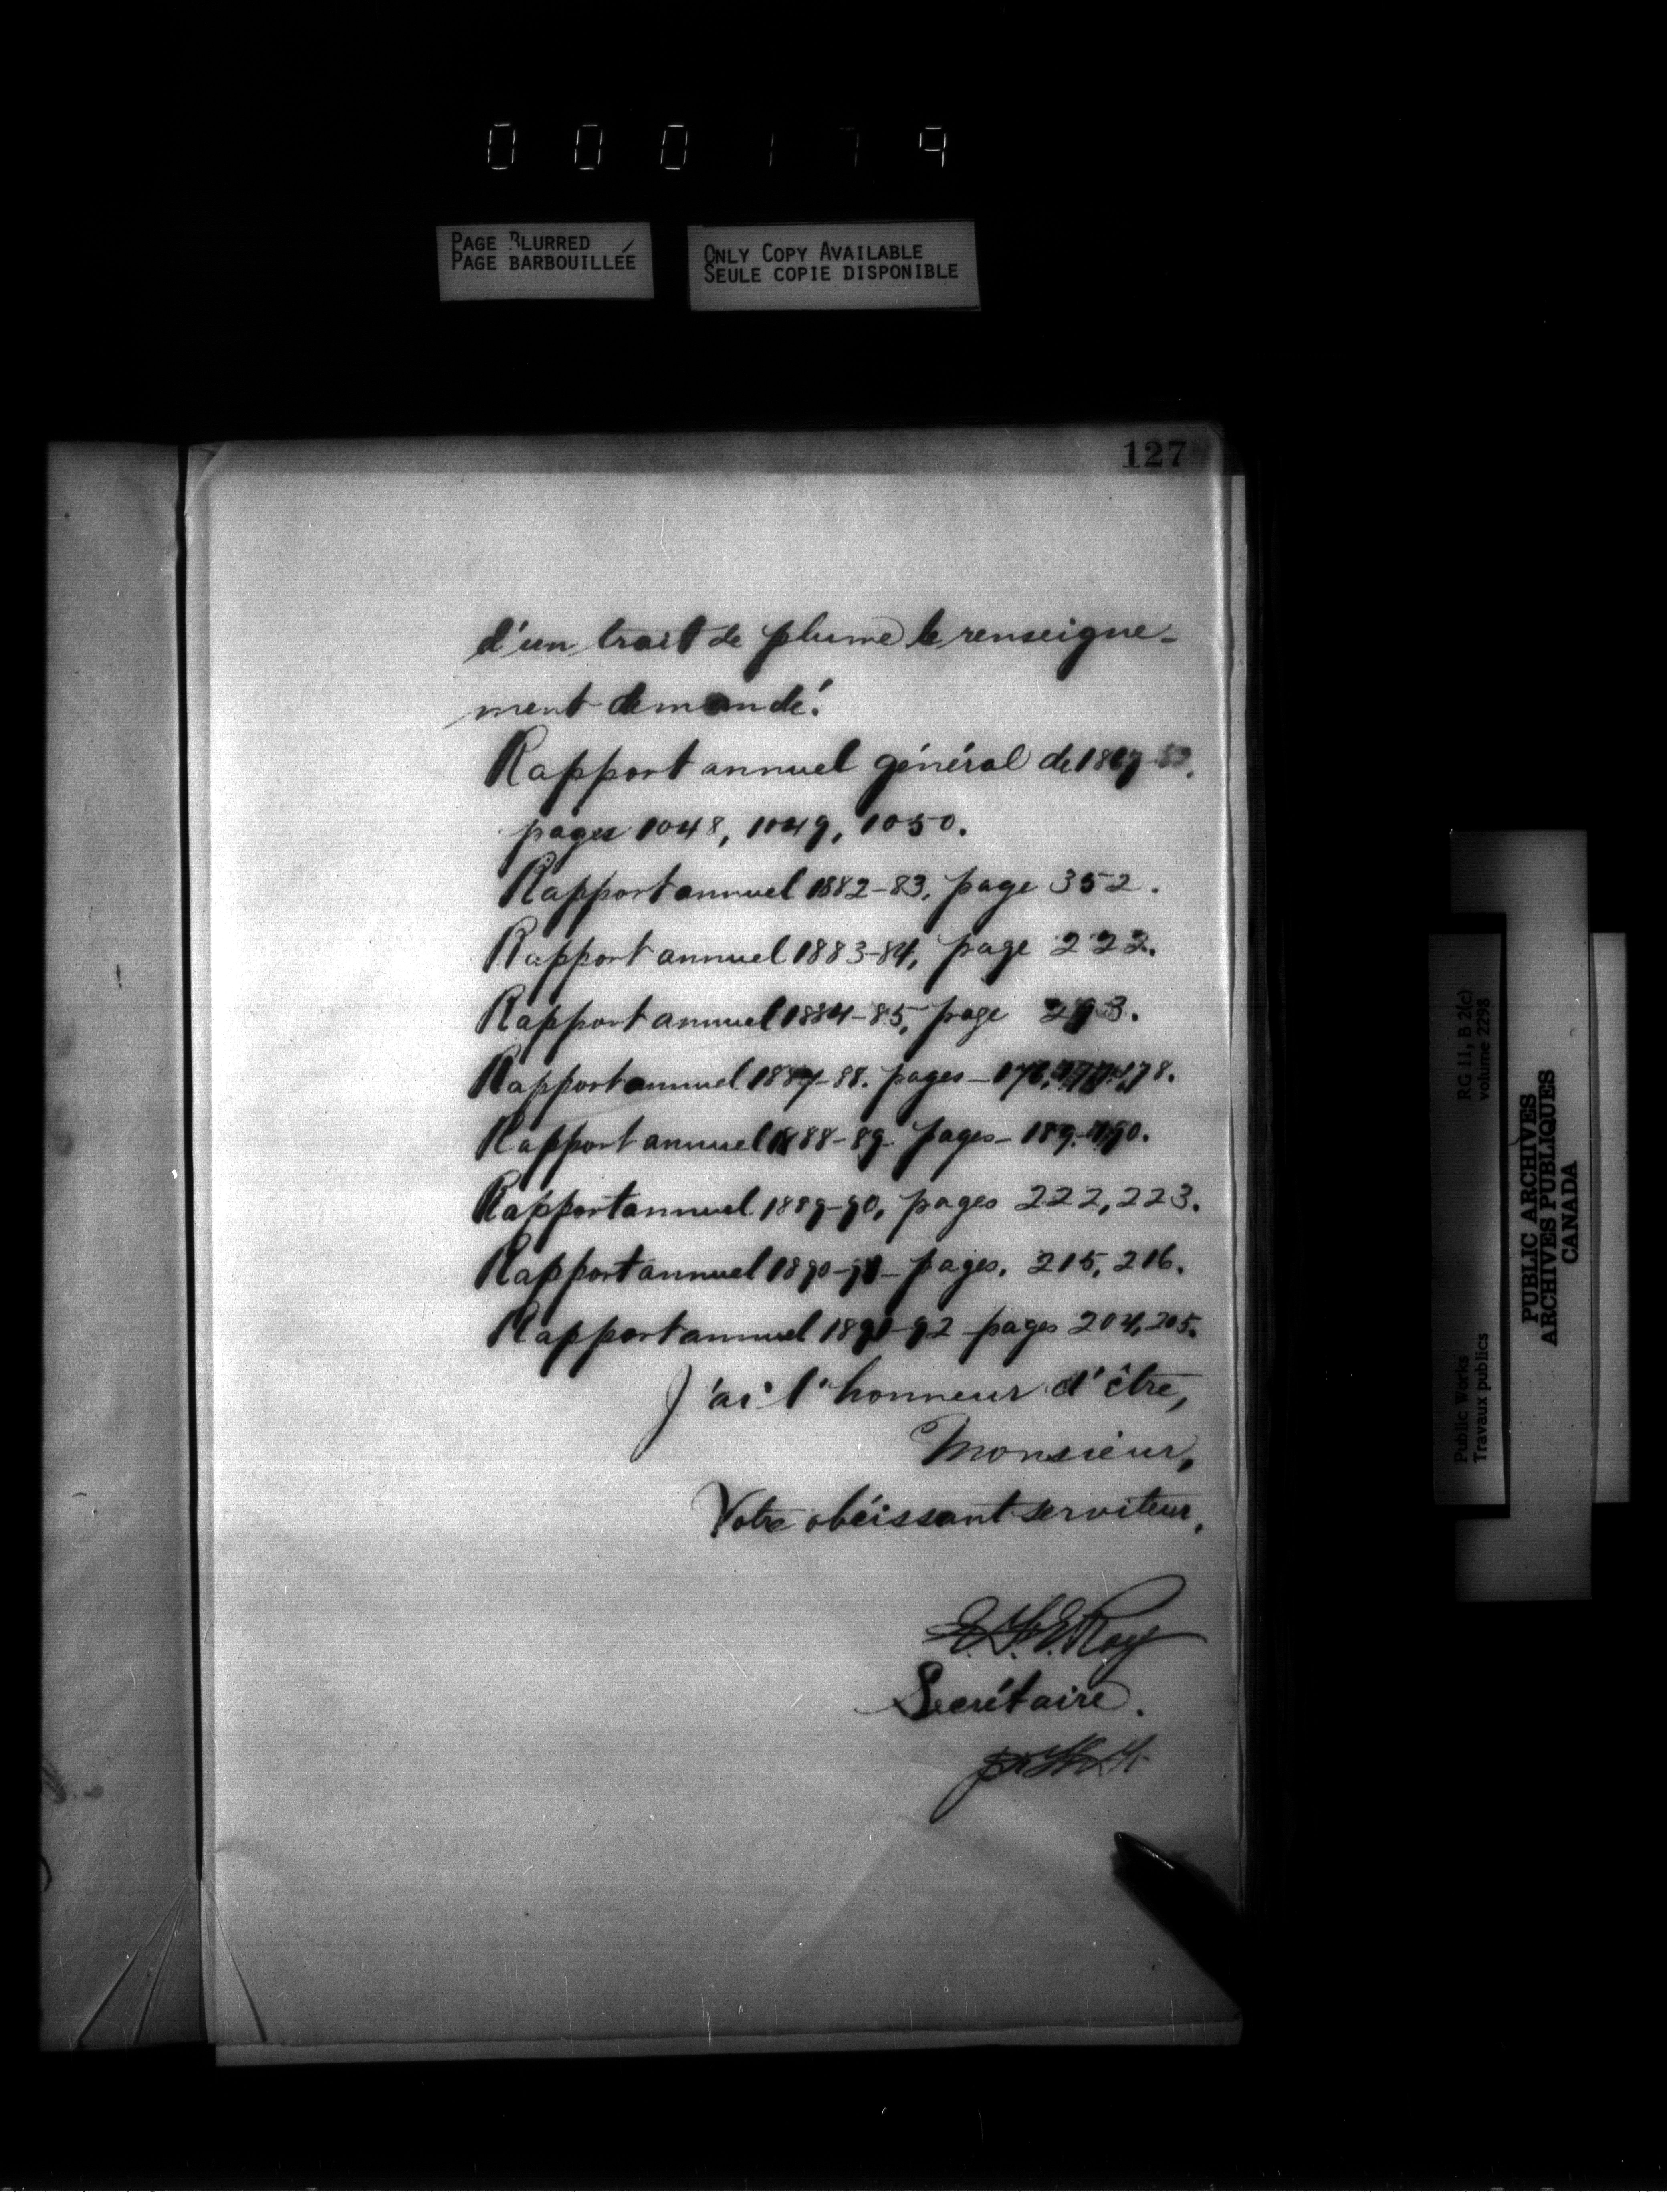 000179
PAGE BLURRED
PAGE BARBOUILLÉE
ONLY COPY AVAILABLE
SEULE COPIE DISPONIBLE
127
d'un trait de plume le renseigne-
ment demandé.
Rapport annuel général de
pages 1048, 1049, 1050.
Rapport annuel 1882-83, page 352.
Rapport annuel 1883-84, page 222.
Rapport annuel 1884-85, page
Rapport annuel 1887-88. pages - 176, 177, 178.
Rapport annuel 1888-89. pages - 189, 190.
Rapport annuel 1889-90, pages 222, 223.
Rapport annuel 1890-91 - pages. 215, 216.
Rapport annuel 1891-92 - pages 204, 205.
J'ai l'honneur d'être,
Monsieur,
Votre obéissant serviteur,
E.F.E. Roy
Secrétaire.
Public Works
Travaux publics
RG 11, B 2(c)
volume 2298
PUBLIC ARCHIVES
ARCHIVES PUBLIQUES
CANADA